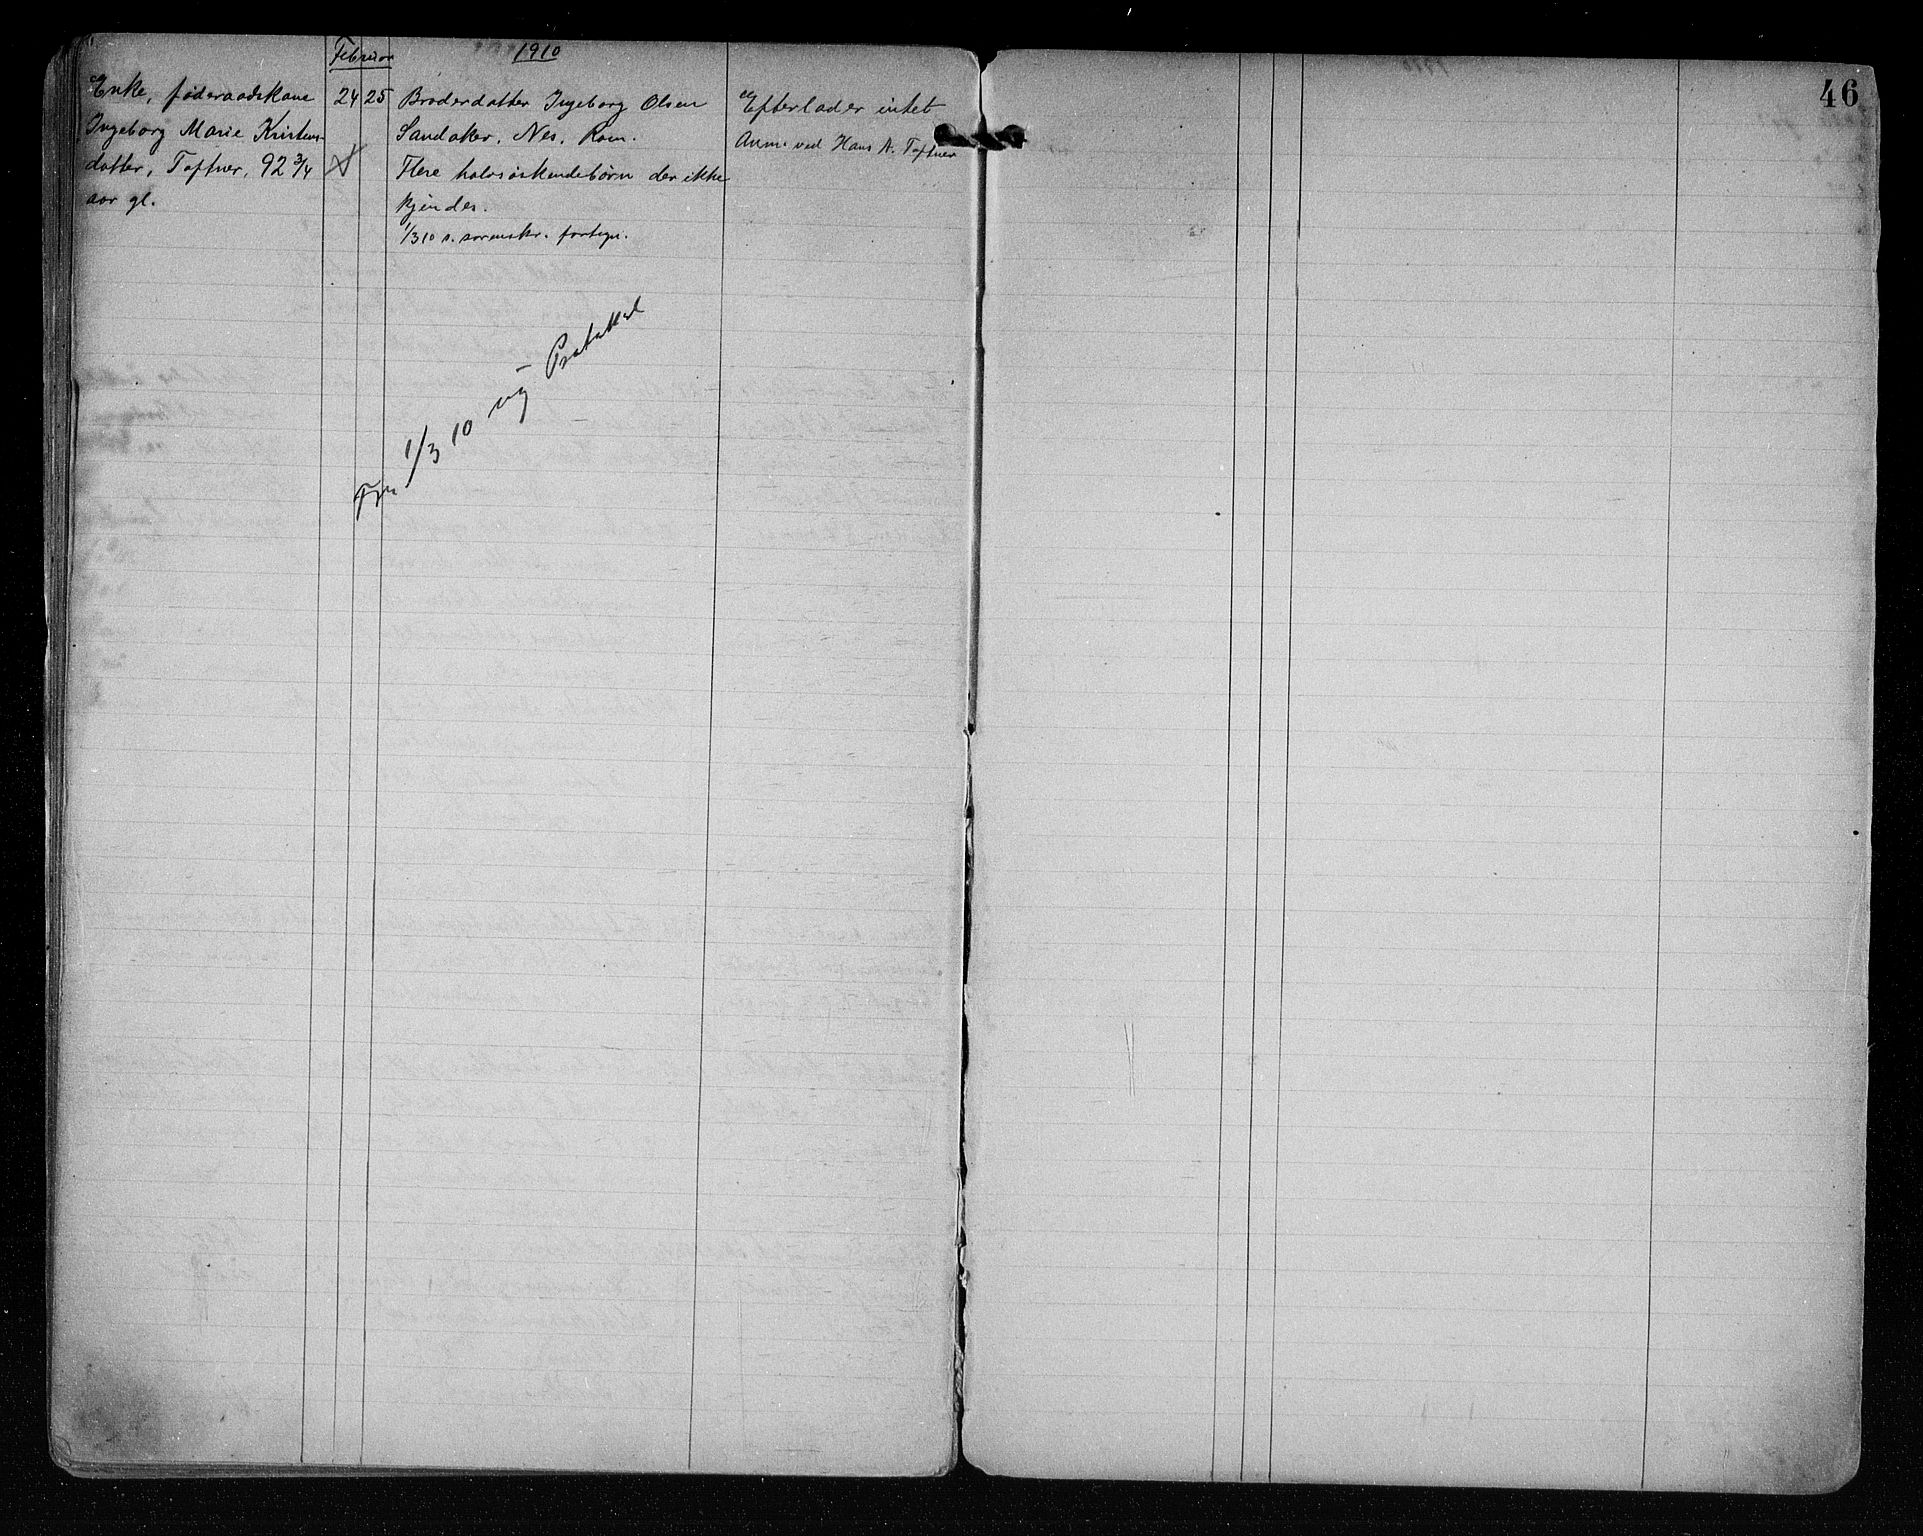 Februar
1910
46
Enke, føderaadskone
Ingeborg Marie Kristens-
datter, Toftner, 92 3/4
aar gl.
24 25
Broderdatter Ingeborg Olsen
Sandaker, Nes, Rom.
Flere halvsøskendebørn der ikke
kjendes.
1/3 10 s. sorenskr. fortegn.
Efterlader intet
Anm. ved Hans A. Toftner
1/3 10 ny Protokol